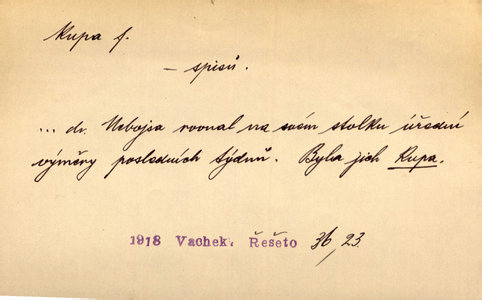 Kupa f.
— spisů.
... dr. Nebojsa rovnal na svém stolku úřední
výměry posledních týdnů. Byla jich Kupa.
1918 Vachek, Řešeto 36, 23.